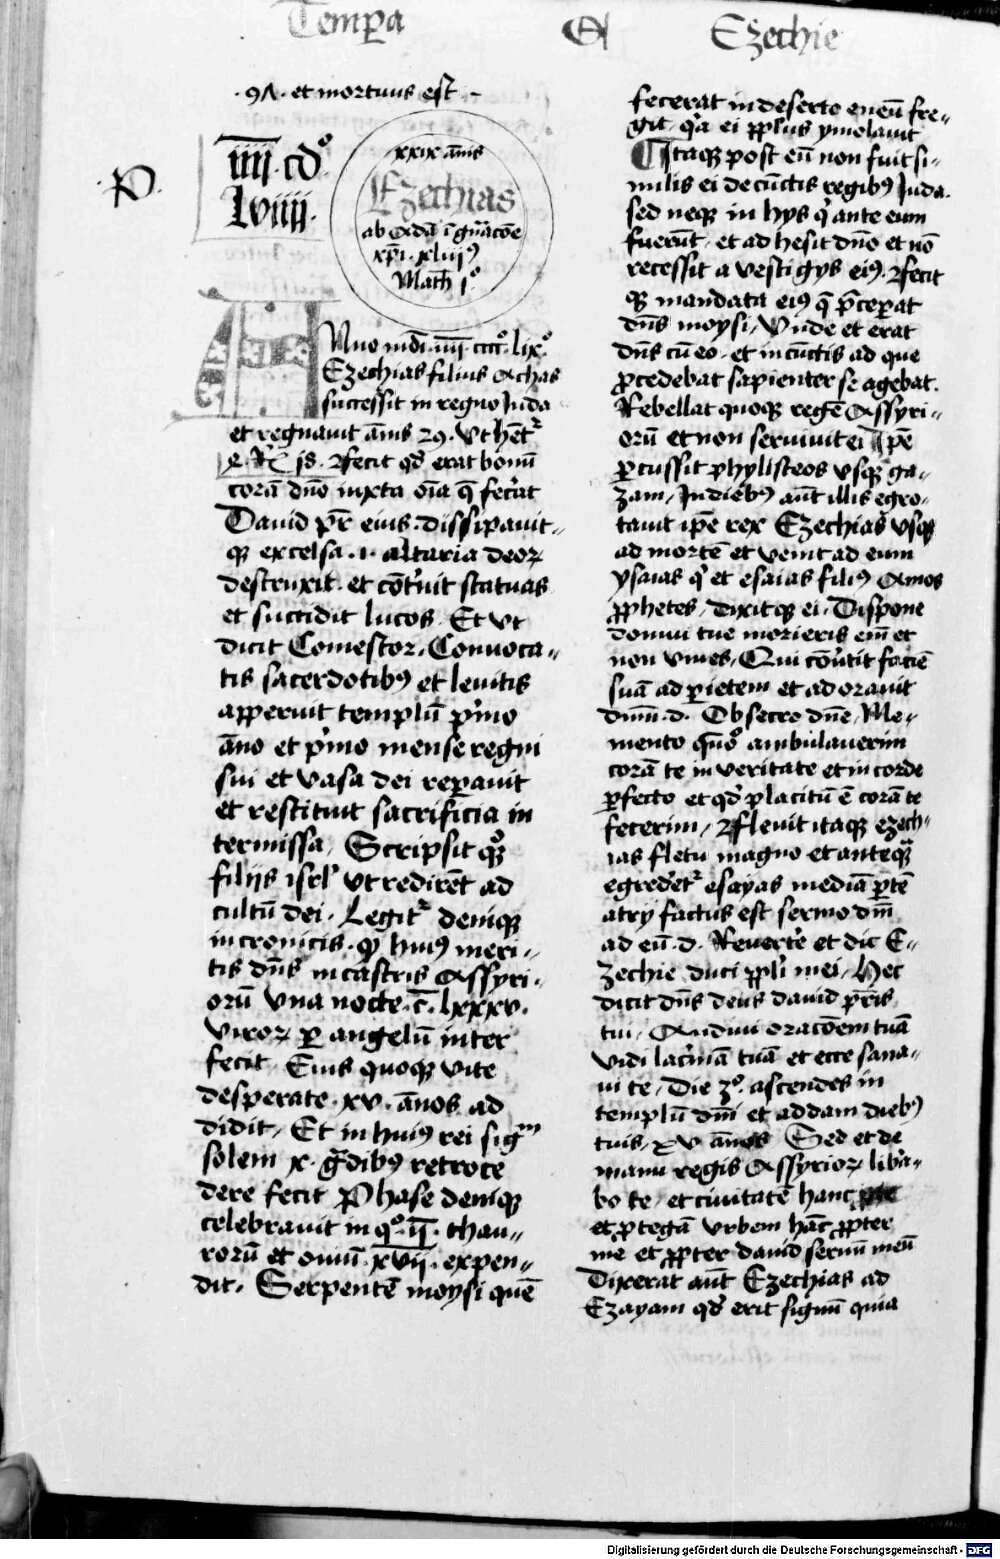 Tempa Ezechie
· 9Λ · et mortuus est ·
P.
iiii cdº
lviiii.
xxix ānis
Ezechias
ab Adā ī gnacōe
xpi · xliijꝰ
Math̄ jº
Anno mdi · iiii · ccccº lixº
Ezechias filius Achas
successit in regno Juda
et regnauit ānis 29 · Vt hētr̄
4 · R̄ 18 · ⁊ fecit qd̄ erat bonū
corā dn̄o iuxta oīa q̄ fec̄at
Dauid pr̄ eius · dissipauit
qꝫ excelsa · i · altaria deoꝝ
destruxit · et cōt̄uit statuas
et succidit lucos · Et vt
dicit Comestor · Conuoca
tis sacerdotibꝰ et leuitis
apperuit templū p̄mo
āno et p̄mo mense regni
sui et vasa dei rep̄auit
et restituit sacrificia in
termissa, Scripsit qꝫ
filijs isrl̄ vt redirēt ad
cultū dei · Legitr̄ deniqꝫ
in cronicis · qꝫ huiꝰ meri
tis dn̄s in castris Assyri
orū vna nocte · c̄ · lxxxv ·
viroꝝ ꝑ angelū inter
fecit · Eius quoqꝫ vite
desperate · xv · ānos ad
didit, Et in huiꝰ rei sigm̄
solem x · ḡdibꝰ retroce
dere fecit Phase deniqꝫ
celebrauit in qº · ij · thau
rorū et ouiū xvij · expen
dit · Serpentē moysi quē
fecerat in deserto eneū fre
git · qꝛ ei ppl̄us ymolauit
Itaqꝫ post eū non fuit si
milis ei de cūctis regibꝰ Juda.
sed neqꝫ in hys qͥ ante eum
fuerūt · et adhesit dn̄o et nō
recessit a vestigys eiꝰ · ⁊ fecit
qꝫ mandata eiꝰ q̄ p̄cep̄at
dn̄s moysi, Vnde et erat
dn̄s cū eo · et in cūctis ad que
ꝓcedebat sapienter se agebat.
Rebellat quoqꝫ regē Assyri
orū et non seruiuit ei Ipē
ꝑcussit phylisteos vsqꝫ ga
zam, In diebꝰ aūt illis egro
tauit ipē rex Ezechias vsqꝫ
ad mortē et venit ad eum
ysaias qͥ et esaias filiꝰ Amos
ꝓphetes, dixitqꝫ ei · Dispone
domui tue morieris em̄ et
non viues, Qui cōūtit faciē
suā ad parietem et adorauit
dm̄ · d · Obsecro dn̄e, Me
mento quō ambulauerim
corā te in veritate et in corde
ꝑfecto et qd̄ placitū ē corā te
fecerim, ⁊ fleuit itaqꝫ ezech
ias fletu magno et anteqꝫ
egred̄etr̄ esayas mediā ꝑtē
atry factus est sermo dn̄i
ad eū · d · Reuert̄e et dic E
zechie duci ppl̄i mei, Hec
dicit dn̄s deus dauid pr̄is
tui, Audiui oracōem tuā
vidi lac̄mā tuā et ecce sana
ui te, Die 3º · ascendes in
templū dn̄i et addam diebꝰ
tuis, xv ānos Sed et de
manu regis Assyrioꝝ lib̄a
bo te, et ciuitatē hanc
et ꝓtegā vrbem hāc ꝓpter
me et ꝓpter dauid seruū meū
Dixerat aūt Ezechias ad
Ezayam qd̄ erit signū quia
Digitalisierung gefördert durch die Deutsche Forschungsgemeinschaft - DFG